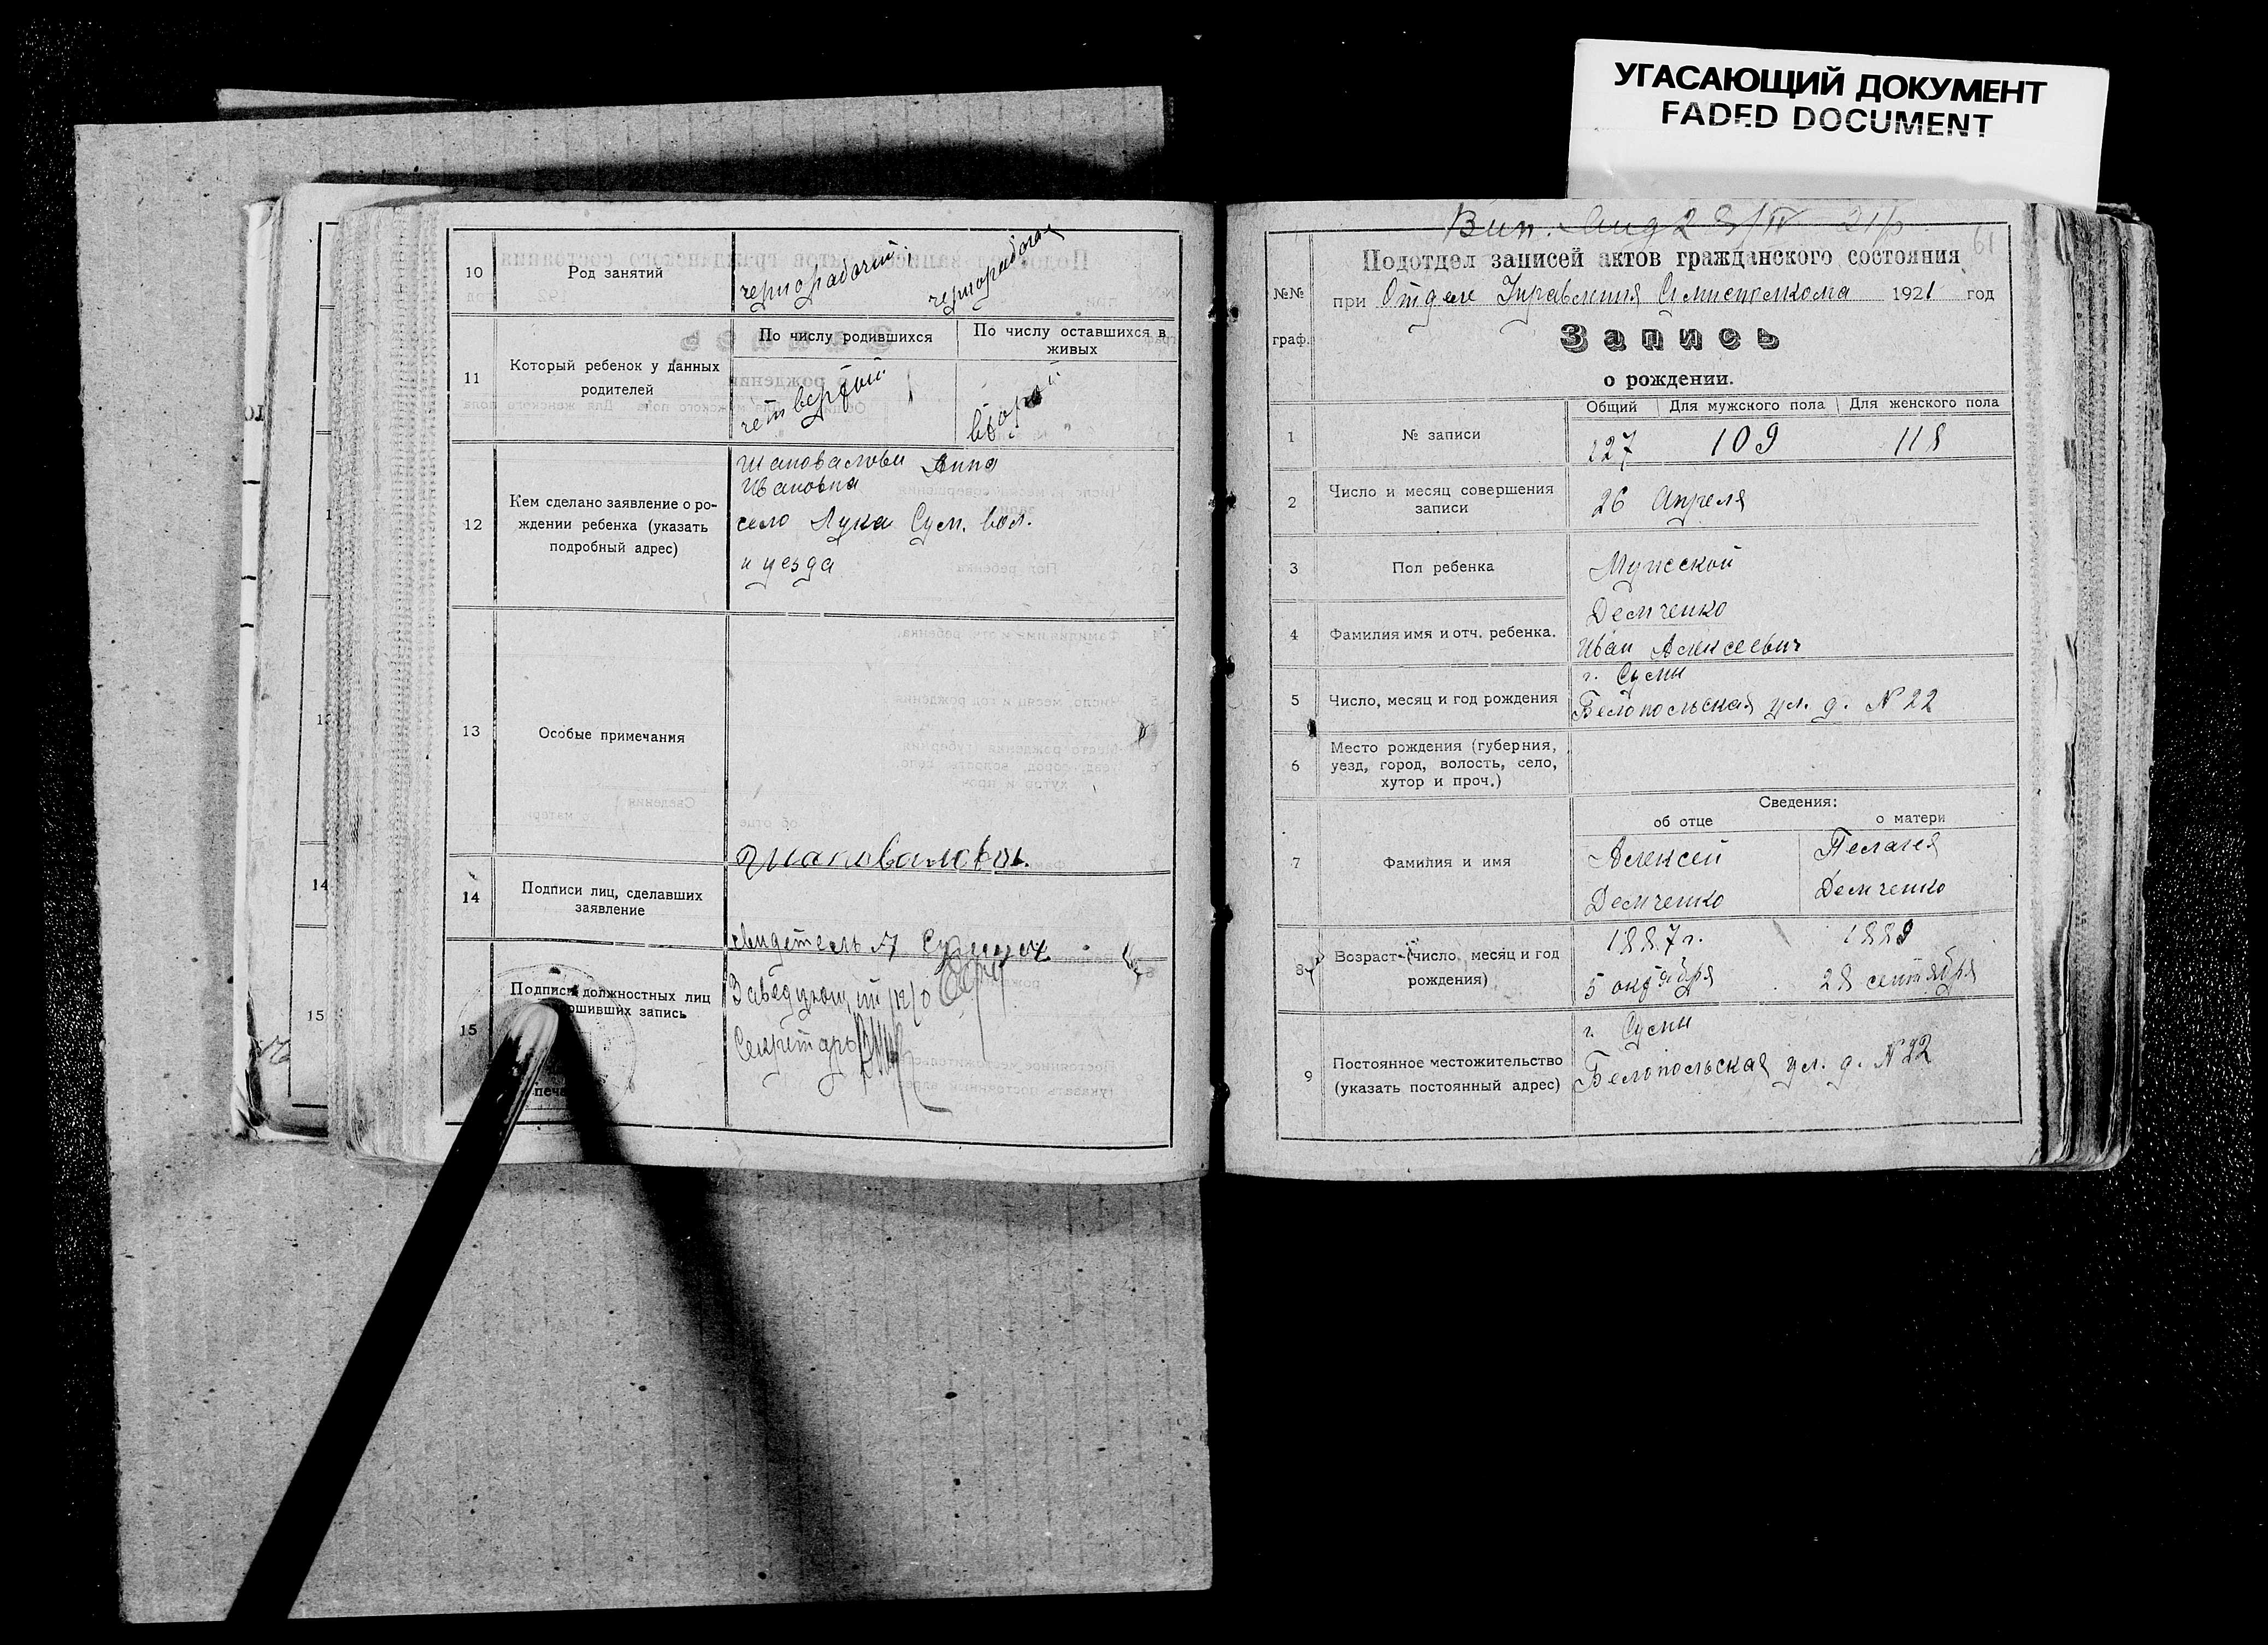 УГАСАЮЩИЙ ДОКУМЕНТ
FADED DOCUMENT
10
Род занятий
чернорабочий
чернорабочая
11
Который ребенок у данных
родителей
По числу родившихся
По числу оставшихся в
живых
четвертый
второй
12
Кем сделано заявление о ро-
ждении ребенка (указать
подробный адрес)
Анна
Ивановна
село Лука Сум. вол.
и уезда
13
Особые примечания
14
Подписи лиц, сделавших
заявление
свидетель
15
Подписи должностных лиц
запись
Заведующий
Секретарь
14
15
№№
граф.
Подотдел записей актов гражданского состояния
при Отделе Управления 1921 год
Запись
о рождении.
1
№ записи
Общий Для мужского пола Для женского пола
227 109 118
2
Число и месяц совершения
записи
26 Апреля
3
Пол ребенка
Мужской
4
Фамилия имя и отч. ребенка.
Демченко
Иван Алексеевич
5
Число, месяц и год рождения
г. Сумы
Белопольская ул. д. № 22
6
Место рождения (губерния,
уезд, город, волость, село,
хутор и проч.)
Сведения:
об отце
о матери
7
Фамилия и имя
Алексей
Демченко
Пелагея
Демченко
8
Возраст (число, месяц и год
рождения)
1887 г.
5 октября
1889
28 сентября
9
Постоянное местожительство
(указать постоянный адрес)
г. Сумы
Белопольская ул. д. № 22